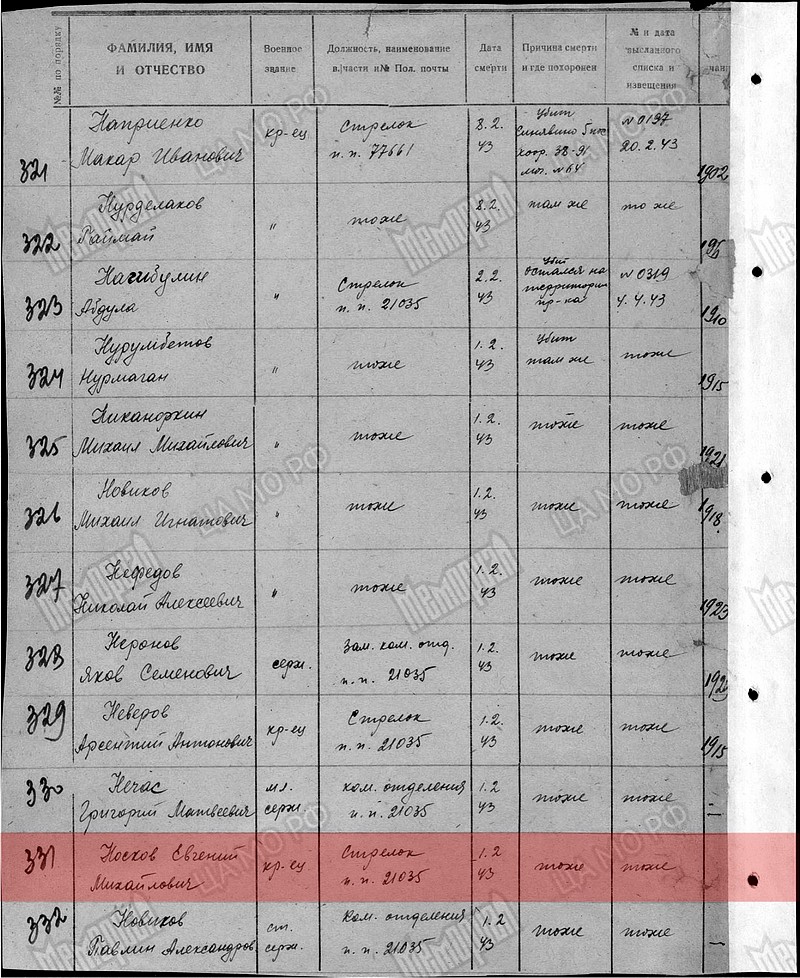 №№ по порядку
ФАМИЛИЯ, ИМЯ И ОТЧЕСТВО
Военное звание
Должность, наименование в.части и № Пол. почты
Дата смерти
Причина смерти и где похоронен
№ и дата высланного списка и извещения
321 Наприенко Макар Иванович кр-ец Стрелок п.п. 77661 8.2.43 убит Синявино 5 коор. 38-91 мог. №64 №0197 20.2.43 1902
322 Нурделаков Раймай " тоже 8.2.43 там же то же
323 Нагибулин Абдула " Стрелок п.п. 21035 2.2.43 убит остался на территории пр-ка №0319 4.4.43 1910
324 Нурумбетов Нурмаган " тоже 1.2.43 убит там же тоже 1915
325 Никаноркин Михаил Михайлович " тоже 1.2.43 тоже тоже 1921
326 Новиков Михаил Игнатович " тоже 1.2.43 тоже тоже 1918.
327 Нефедов Николай Алексеевич " тоже 1.2.43 тоже тоже 1923
328 Неронов Яков Семенович серж. Зам. ком. отд. п.п. 21035 1.2.43 тоже тоже
329 Неверов Арсентий Антонович кр-ец Стрелок п.п. 21035 1.2.43 тоже тоже 1915
330 Нечас Григорий Матвеевич мл. серж. ком. отделения п.п. 21035 1.2.43 тоже тоже —
331 Носков Евгений Михайлович кр-ец Стрелок п.п. 21035 1.2.43 тоже тоже
332 Новиков Павлин Александров ст. серж. ком. отделения п.п. 21035 1.2.43 тоже тоже —
Мемориал
ЦАМО РФ